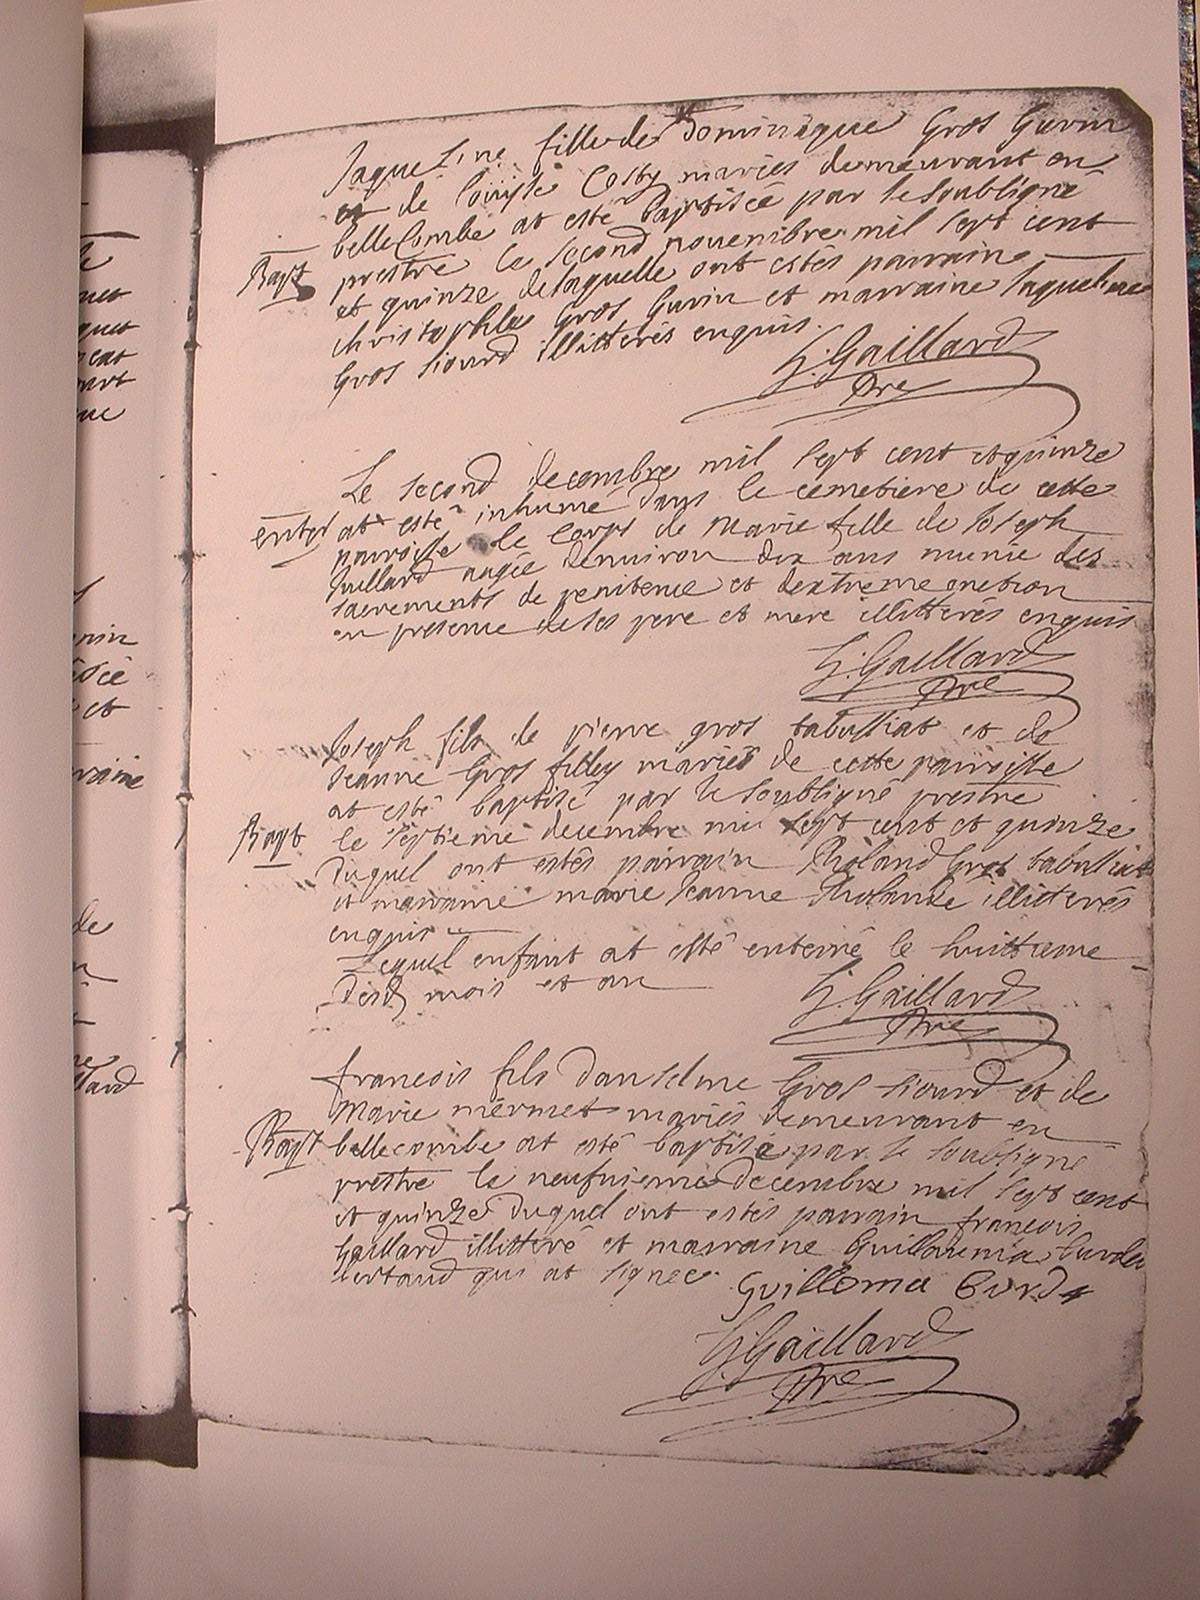 Jaqueline fille de Dominique Gros Gurin
et de louyse Costy mariés demeurant en
belleCombe at esté baptisée par le soubsigné
Bapt prestre le second nouembre mil sept cent
et quinze de laquelle ont estés parrain
christophle Gros Gurin et marraine Jaqueline
Gros siourd illittérés enquis.
J. Gaillard
Pre
Le second decembre mil sept cent et quinze
enter at esté inhumé dans le cemetiere de cette
parroisse le corps de Marie fille de Joseph
Gaillard augée denuiron dix ans munie des
sacrements de penitence et dextreme onction
en presence de ses pere et mere illittérés enquis
J. Gaillard
Pre
Joseph fils de pierre gros tabussiat et de
Jeanne Gros filley mariés de cette parroisse
at esté baptisé par le soubsigné prestre
Bapt le septieme decembre mil sept cent et quinze
duquel ont estés parrain Rholand Gros tabussiat
et marraine marie Jeanne Rholande illitterés
enquis
Lequel enfant at esté enterré le huittieme
desd mois et an
J. Gaillard
Pre
francois fils danselme Gros siourd et de
Marie mermet mariés demeurant en
Bapt bellecombe at esté baptisé par le soubsigné
prestre le neufuieme decembre mil sept cent
et quinze duquel ont estés parrain francois
Gaillard illitteré et marraine Guillaumia burdet
qui at signée Guilloma Burd
J. Gaillard
Pre